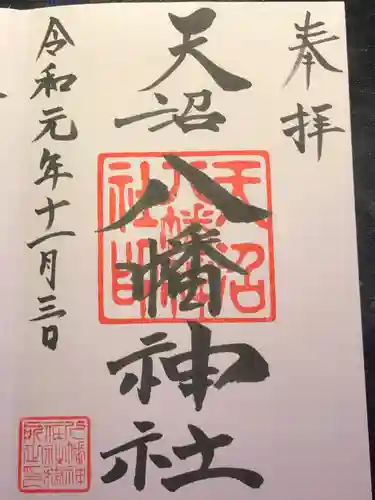 奉拝
天沼
八幡神社
令和元年十一月三日
天沼
八幡
社印